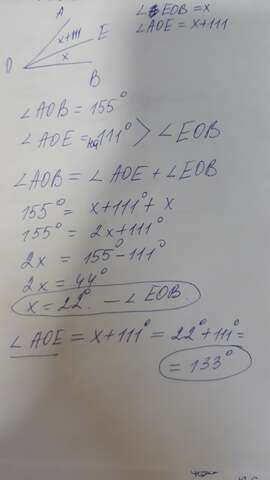 A
∠EOB = x
x+111
E
∠AOE = x+111
O
x
B
∠AOB = 155°
∠AOE = на 111° > ∠EOB
∠AOB = ∠AOE + ∠EOB
155° = x+111° + x
155° = 2x+111°
2x = 155° - 111°
2x = 44°
x = 22°. — ∠EOB.
∠AOE = x+111° = 22°+111° =
= 133°